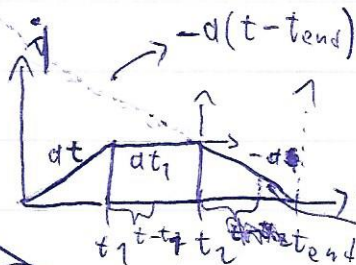 q̇
-a(t-t_end)
at
at₁
-a
t₁ t-t₁ t₂ t_end